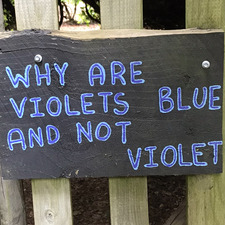 WHY ARE
VIOLETS BLUE
AND NOT
VIOLET